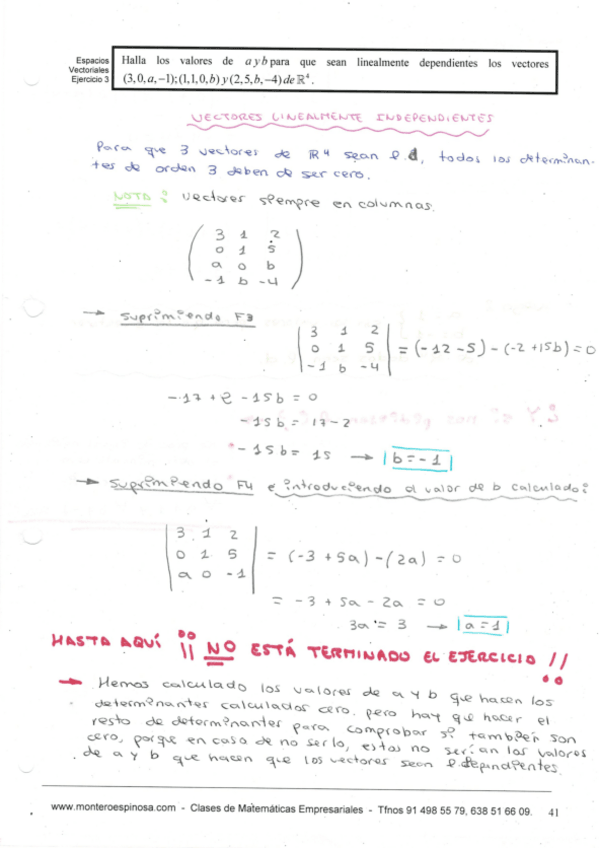 Espacios
Vectoriales
Ejercicio 3
Halla los valores de a y b para que sean linealmente dependientes los vectores
(3,0,a,−1);(1,1,0,b) y (2,5,b,−4) de ℝ⁴.
VECTORES LINEALMENTE INDEPENDIENTES
Para que 3 vectores de R4 sean l.d, todos los determinan-
tes de orden 3 deben de ser cero.
NOTA: vectores siempre en columnas.
3 1 2
0 1 5
a 0 b
-1 b -4
→ Suprimiendo F3
3 1 2
0 1 5 = (-12 -5) - (-2 +15b) = 0
-1 b -4
-17 + 2 - 15b = 0
-15b = 17-2
-15b = 15 → b = -1
→ Suprimiendo F4 e introduciendo el valor de b calculado:
3 1 2
0 1 5 = (-3 + 5a) - (2a) = 0
a 0 -1
= -3 + 5a - 2a = 0
3a = 3 → a = 1
HASTA AQUÍ ¡¡ NO ESTÁ TERMINADO EL EJERCICIO !!
→ Hemos calculado los valores de a y b que hacen los
determinantes calculados cero, pero hay que hacer el
resto de determinantes para comprobar si también son
cero, porque en caso de no serlo, estos no serían los valores
de a y b que hacen que los vectores sean l.dependientes.
www.monteroespinosa.com - Clases de Matemáticas Empresariales - Tfnos 91 498 55 79, 638 51 66 09. 41